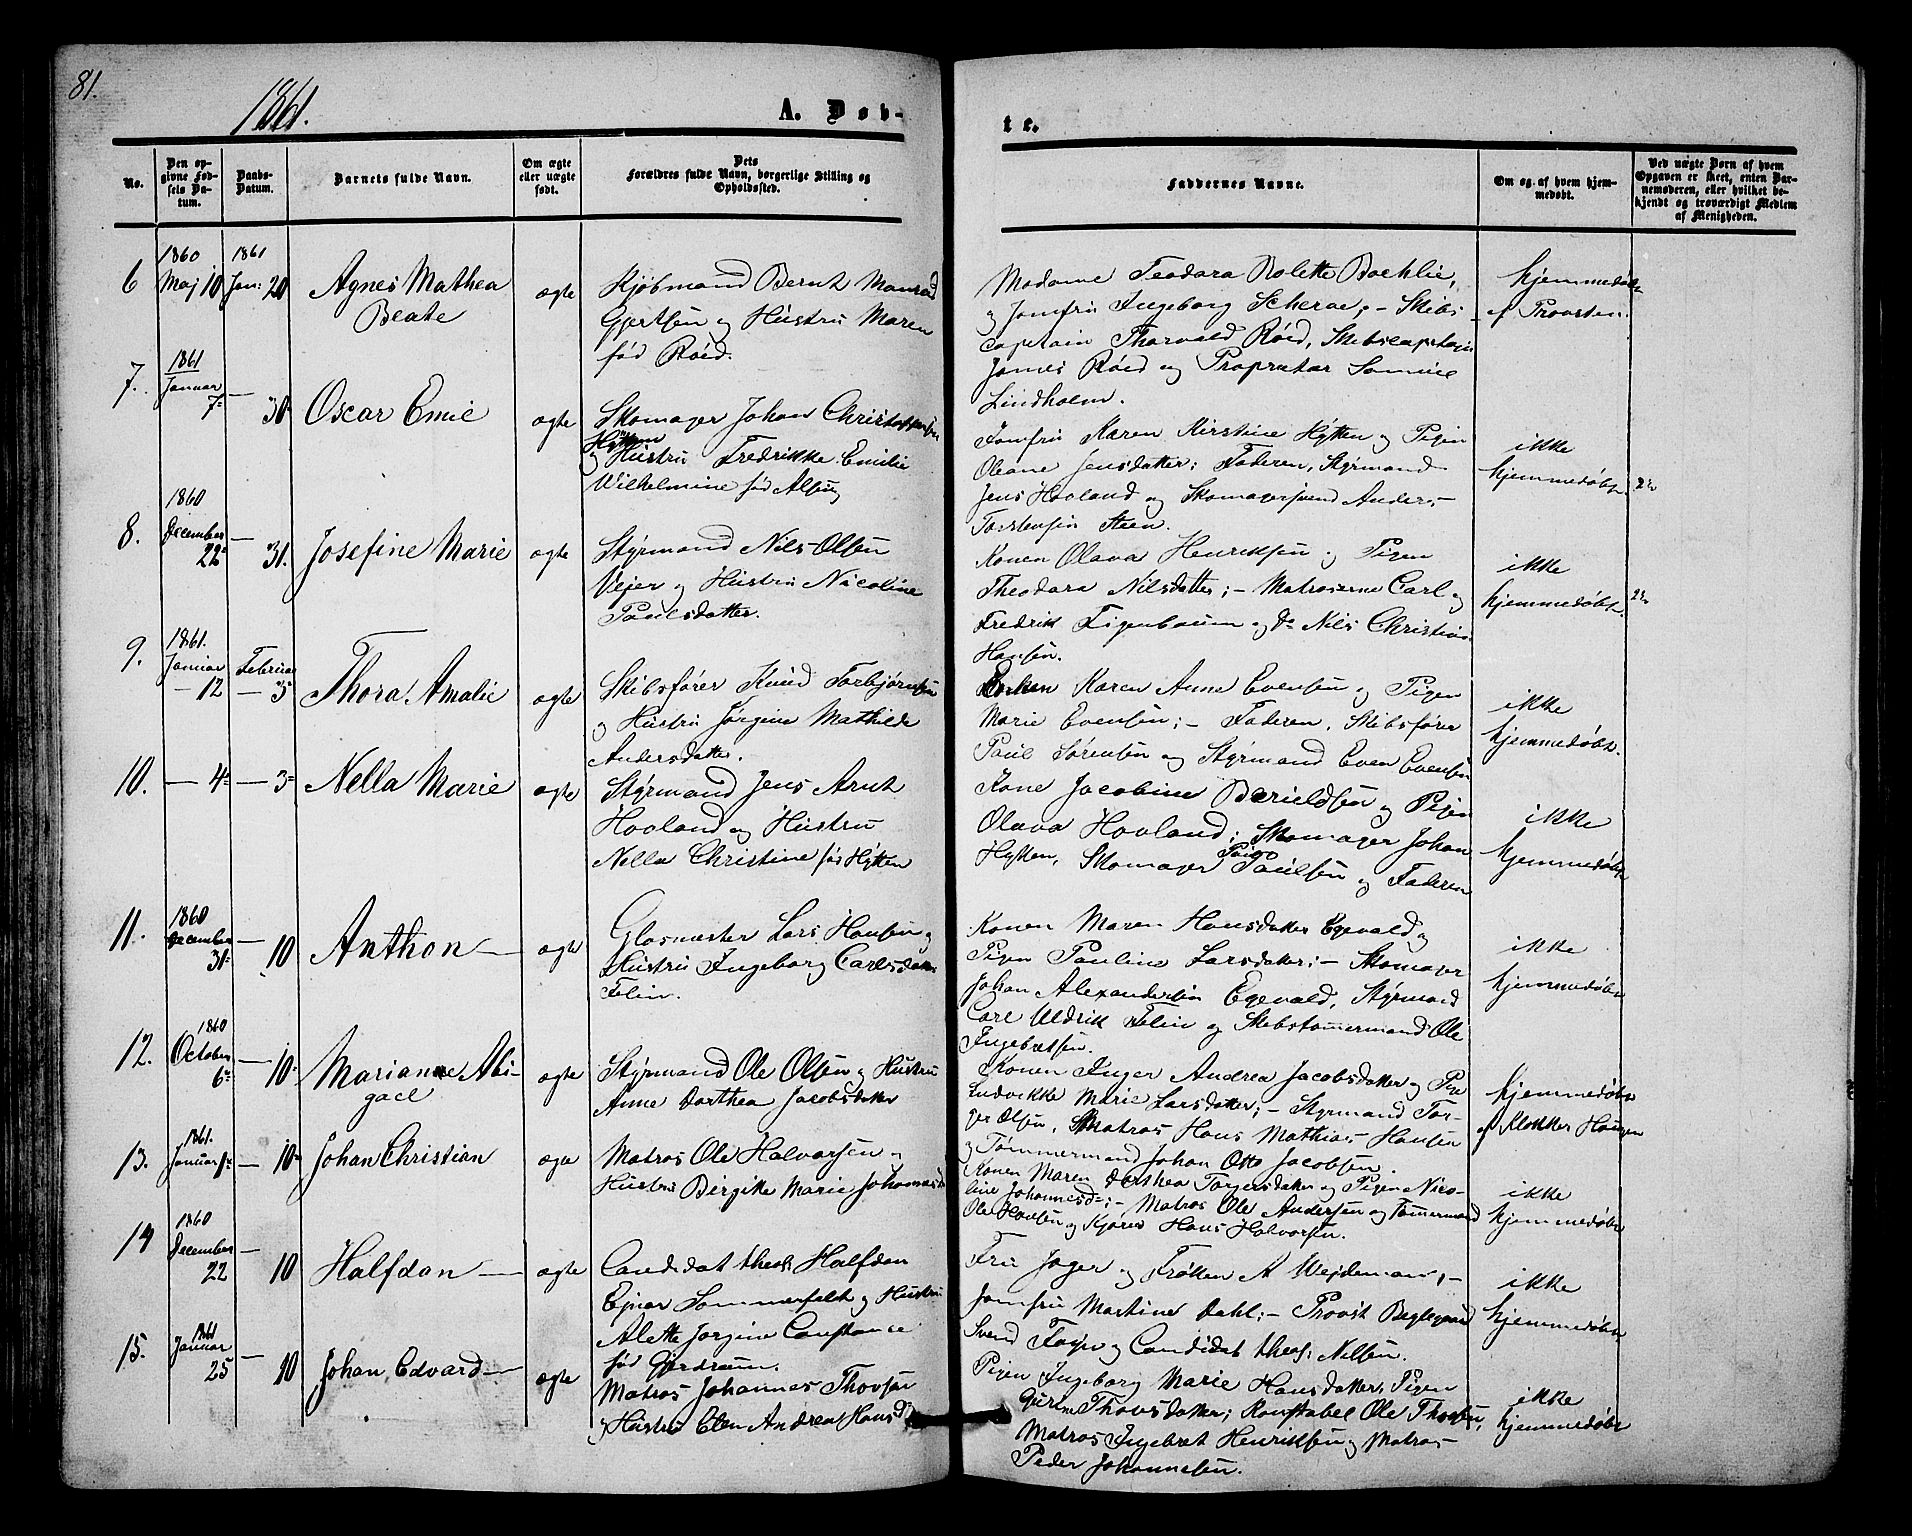 81.
1861.
A. Døb-
te.
No.
Den op-
givne Fød-
sels Da-
tum.
Daabs-
Datum.
Barnets fulde Navn.
Om ægte
eller uægte
født.
Dets
Forældres fulde Navn, borgerlige Stilling og
Opholdssted.
Faddernes Navne.
Om og af hvem hjem-
medøbt.
Ved uægte Børn af hvem
Opgaven er skeet, enten Bar-
nemoderen, eller hvilket be-
kjendt og troværdigt Medlem
af Menigheden.
6
1860
Maj 10
1861
Jan: 20
Agnes Mathea
Beate
ægte
Kjøbmand Bernt Monrad
Gjertsen og Hustru Maren
fød Røed.
Madame Teodara Bolette Boehlie,
og Jomfru Ingeborg Scheroe; - Skibs-
capitain Thorvald Røed, Skibscaptain
James Røed og Proprietær Samuel
Lindholm.
hjemmedøbt
af Provsten.
7.
1861
Januar
7de
30
Oscar Emil
ægte
Skomager Johan Christophersen
Hytten
og Hustru Fredrikke Emilie
Wilhelmine fød Alsing
Jomfru Karen Kirstine Hytten og Pigen
Oleane Jensdatter; Faderen, Styrmand
Jens Hovland og Skomagersvend Anders
Torstensen Steen.
ikke
hjemmedøbt.
8.
1860
December
22
31.
Josefine Marie
ægte
Styrmand Nils Olsen
Vejer og Hustru Nicoline
Paulsdatter.
Konen Olava Henriksen og Pigen
Theodara Nilsdatter; - Matroserne Carl
Fredrik Figenbaum og Do Nils Christian
Hansen.
ikke
hjemmedøbt.
9.
1861.
Januar
- 12
Februar
- 3
Thora Amalie
ægte
Skibsfører Knud Torbjørnsen
og Hustru Jørgine Mathilde
Andersdatter.
Enken Karen Anne Evensen og Pigen
Marie Evensen; - Faderen, Skibsfører
Paul Sørensen og Styrmand Even Evensen
ikke
hjemmedøbt.
10.
- 4 - 3
Nella Marie
ægte
Styrmand Jens Arnt
Hovland og Hustru
Nella Christine fød Hytten
Kone Jacobine Berieldsen og Pigen
Olava Hovland; Skomager Johan
Hytten, Skomager Paulsen og Faderen
ikke
hjemmedøbt
11.
1860
December
31
- 10
Anthon -
ægte
Glasmester Lars Hansen og
Hustru Ingeborg Carlsdatter
Felin.
Konen Maren Hansdatter Egevald og
Pigen Pauline Larsdatter; - Skomager
Johan Alexandersen Egevald, Styrmand
Carl Uldrik Felin og Skibstømmermand Ole
Ingebretsen.
ikke
hjemmedøbt
12.
1860
October
6
- 10
Marianne Abi-
gael
ægte
Styrmand Ole Olsen og Hustru
Anne Dorthea Jacobsdatter
Konen Inger Andrea Jacobsdatter og Pige
Ludvikke Marie Larsdatter; - Styrmand Tor-
ger Olsen, Matros Hans Mathias Hansen
og Tømmermand Johan Otto Jacobsen.
hjemmedøbt
af Klokker Haugen
13.
1861.
Januar 1ste
- 10
Johan Christian
ægte
Matros Ole Halvorsen og
Hustru Birgitte Marie Johannesd
Konen Maren Dorthea Torgersdatter og Pigen Nico-
line Johannesd:; - Matros Ole Andersen og Tømmermand
Ole Hansen og Kjører Hans Halvorsen.
ikke
hjemmedøbt
14
1860
December
22
- 10
Halfdan -
ægte
Candidat theol: Halfdan
Ejnar Sommerfelt og Hustru
Alette Jørgine Constance
fød Gjerdrum.
Fru Jager og Frøken A Wejdemann; -
Jomfru Martine Dahl; - Provst
Svend Foyn og Candidat theol: Nilsen.
ikke
hjemmedøbt
15.
1861
Januar
25
- 10
Johan Edvard -
ægte
Matros Johannes Thovsen
og Hustru Elen Andrea Hansd
Pigen Ingeborg Marie Hansdatter, Pigen
Thovsdatter; Konstabel Ole Thovsen,
Matros Ingebret Henriksen og Matros
Peder Johannesen.
ikke
hjemmedøbt